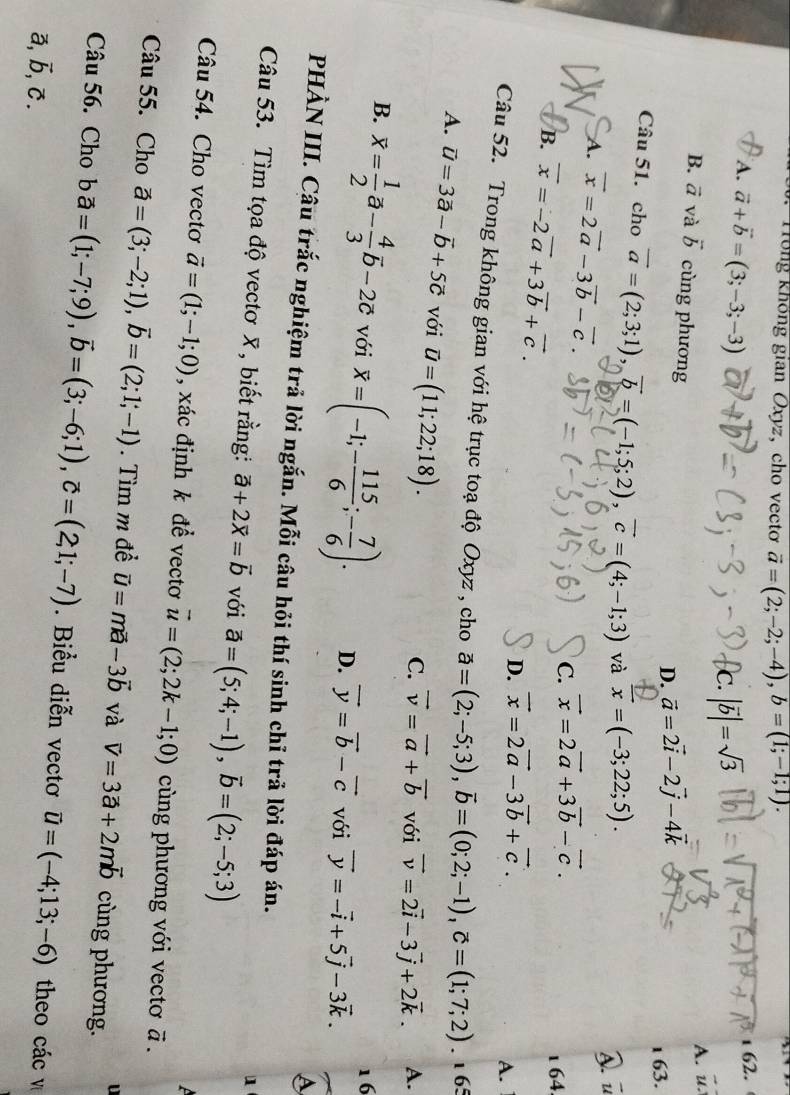 Trong không gian Oxyz, cho vectơ a⃗ = (2;-2;-4), b = (1;-1;1).
A. a⃗ + b⃗ = (3;-3;-3) a⃗ + b⃗ = (3; -3; -3) C. |b⃗| = √3
B. a⃗ và b⃗ cùng phương D. a⃗ = 2i⃗ - 2j⃗ - 4k⃗
Câu 51. cho a⃗ = (2;3;1), b⃗ = (-1;5;2), c⃗ = (4;-1;3) và x⃗ = (-3;22;5).
A. x⃗ = 2a⃗ - 3b⃗ - c⃗. C. x⃗ = 2a⃗ + 3b⃗ - c⃗.
3b⃗ = (-3; 15; 6)
B. x⃗ = -2a⃗ + 3b⃗ + c⃗. D. x⃗ = 2a⃗ - 3b⃗ + c⃗.
Câu 52. Trong không gian với hệ trục toạ độ Oxyz, cho a⃗ = (2;-5;3), b⃗ = (0;2;-1), c⃗ = (1;7;2).
A. u⃗ = 3a⃗ - b⃗ + 5c⃗ với u⃗ = (11;22;18). C. v⃗ = a⃗ + b⃗ với v⃗ = 2i⃗ - 3j⃗ + 2k⃗.
B. x⃗ = 1/2 a⃗ - 4/3 b⃗ - 2c⃗ với x⃗ = (-1; -115/6; -7/6). D. y⃗ = b⃗ - c⃗ với y⃗ = -i⃗ + 5j⃗ - 3k⃗.
PHẦN III. Câu trắc nghiệm trả lời ngắn. Mỗi câu hỏi thí sinh chỉ trả lời đáp án.
Câu 53. Tìm tọa độ vectơ x⃗, biết rằng: a⃗ + 2x⃗ = b⃗ với a⃗ = (5;4;-1), b⃗ = (2;-5;3)
Câu 54. Cho vectơ a⃗ = (1;-1;0), xác định k để vectơ u⃗ = (2;2k-1;0) cùng phương với vectơ a⃗.
Câu 55. Cho a⃗ = (3;-2;1), b⃗ = (2;1;-1). Tìm m để u⃗ = ma⃗ - 3b⃗ và v⃗ = 3a⃗ + 2mb⃗ cùng phương.
Câu 56. Cho b a⃗ = (1;-7;9), b⃗ = (3;-6;1), c⃗ = (2;1;-7). Biểu diễn vectơ u⃗ = (-4;13;-6) theo các
a⃗, b⃗, c⃗.
62.
A. u⃗
63.
A. u⃗
64.
A.
65
A.
16
A
u
A
u